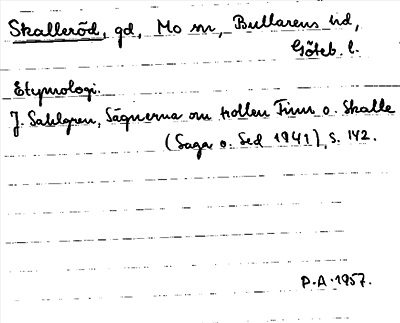 Skalleröd, gd, Mo sn, Bullarens hd,
Göteb. l.
Etymologi.
J. Sahlgren, Sägnerna om trollen Finn o. Skalle
(Saga o. Sed 1941), s. 142.
P.A. 1957.